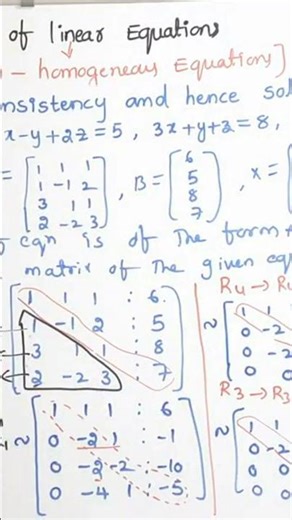 of linear Equations
- homogeneous Equations]
nsistency and hence sol
x-y+2z=5, 3x+y+z=8,
= [1 1 1
1 -1 2
3 1 1
2 -2 3], B = [6
5
8
7], x =
eqn is of The form
matrix of The given eq
[1 1 1 : 6
1 -1 2 : 5
3 1 1 : 8
2 -2 3 : 7]
~ [1 1 1 : 6
0 -2 1 : -1
0 -2 -2 : -10
0 -4 1 : -5]
R4 → R
~ [1 1
0 -2
0 -2
0
R3 → R3
~ [1 1
0 -2
0 0
0 0